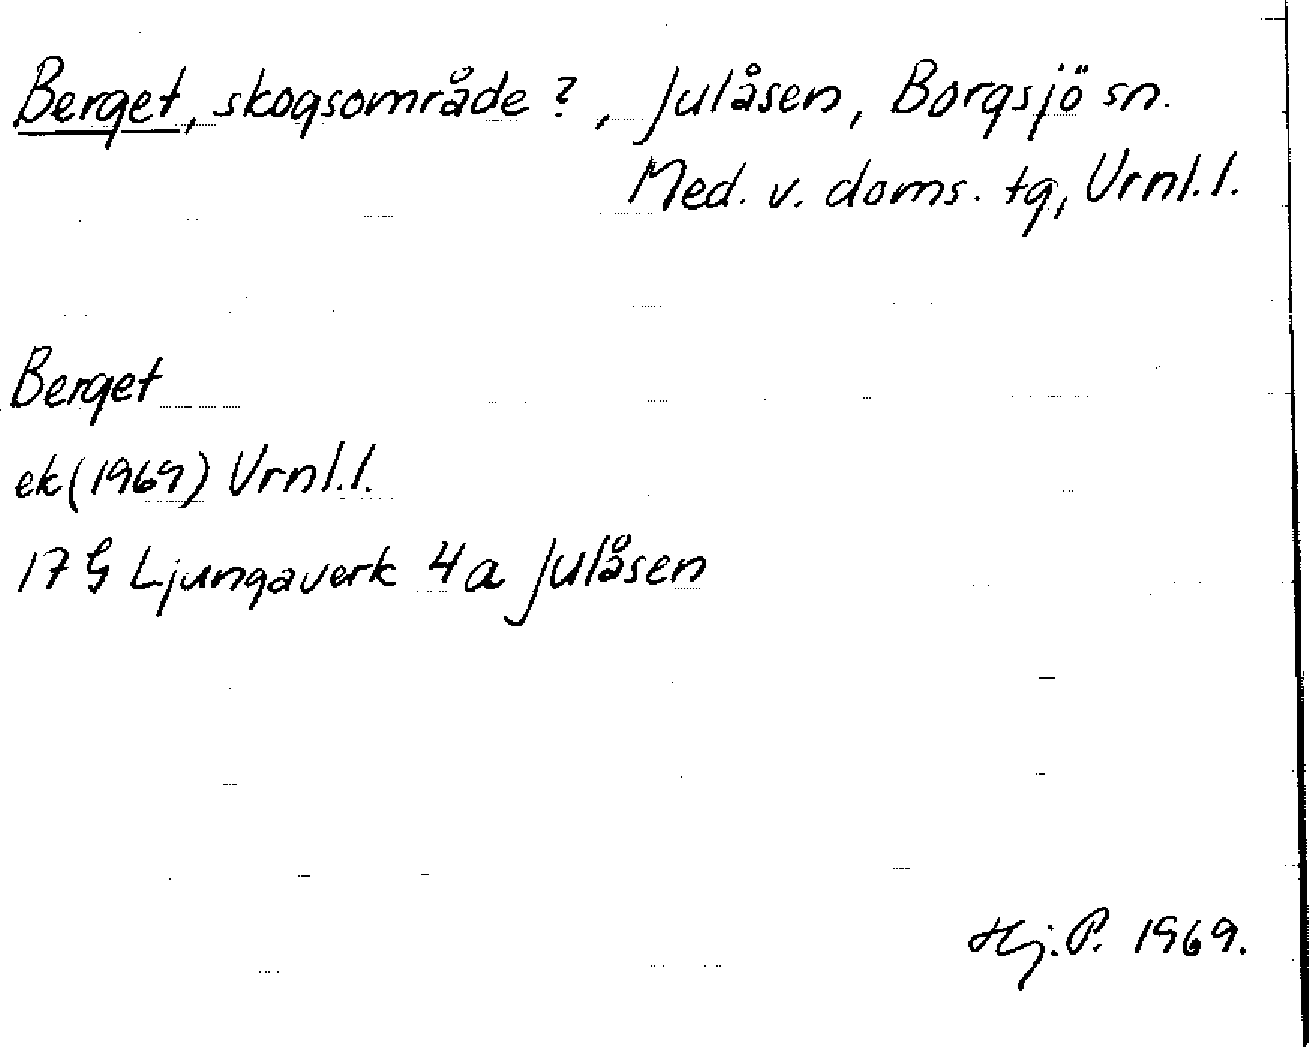 Berget, skogsområde?, Julåsen, Borgsjö sn.
Med. v. doms. tg, Vrnl.l.
Berget
ek (1969) Vrnl.l.
17 G Ljungaverk 4a Julåsen
Hj. P. 1969.